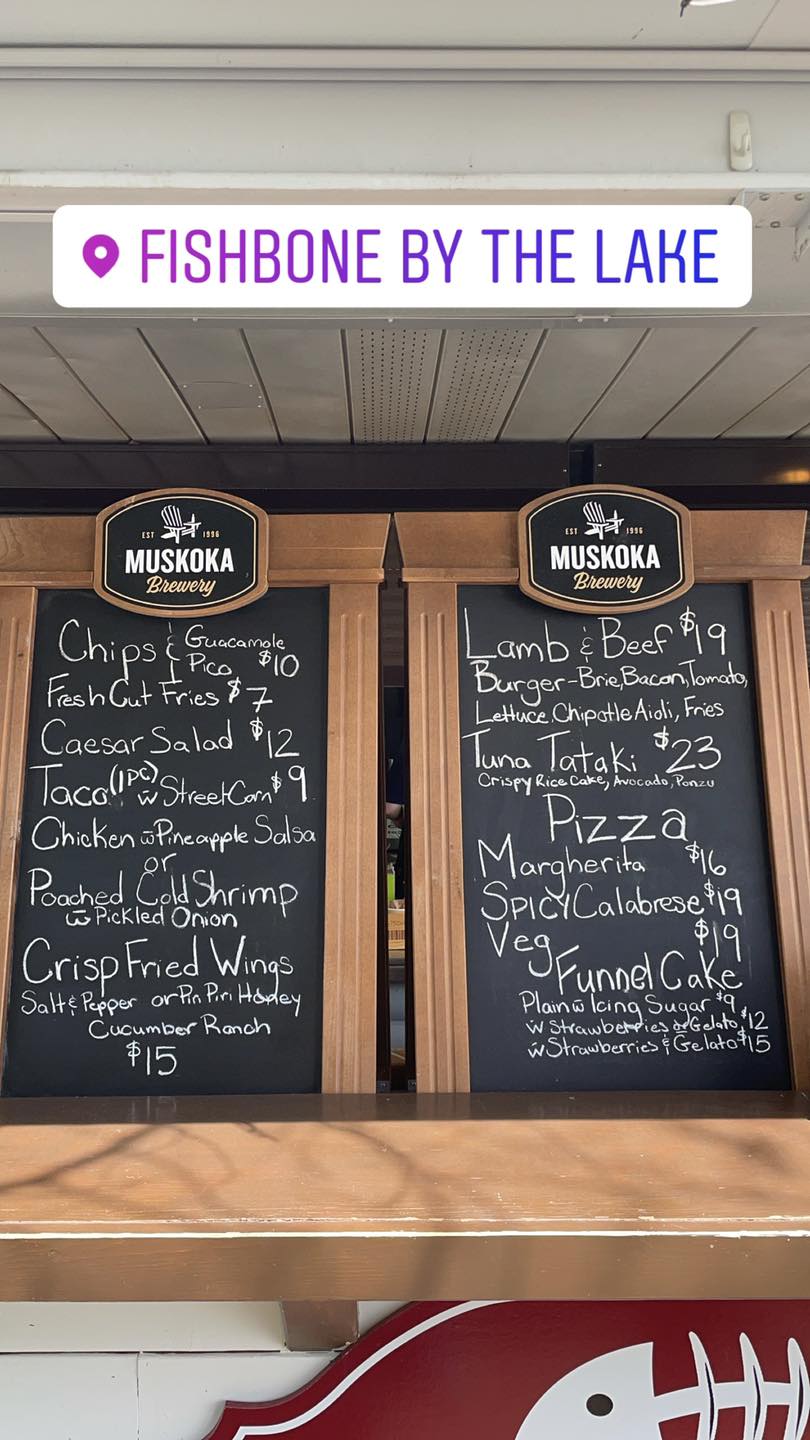 FISHBONE BY THE LAKE
EST 1996
MUSKOKA
Brewery
Chips & Guacamole
Pico $10
Fresh Cut Fries $7
Caesar Salad $12
Taco (1pc) w Street Corn $9
Chicken w Pineapple Salsa
or
Poached Cold Shrimp
w Pickled Onion
Crisp Fried Wings
Salt & Pepper or Piri Piri Honey
Cucumber Ranch
$15
EST 1996
MUSKOKA
Brewery
Lamb & Beef $19
Burger - Brie, Bacon, Tomato,
Lettuce, Chipotle Aioli, Fries
Tuna Tataki $23
Crispy Rice Cake, Avocado, Ponzu
Pizza
Margherita $16
Spicy Calabrese $19
Veg $19
Funnel Cake
Plain w Icing Sugar $9
w Strawberries or Gelato $12
w Strawberries & Gelato $15